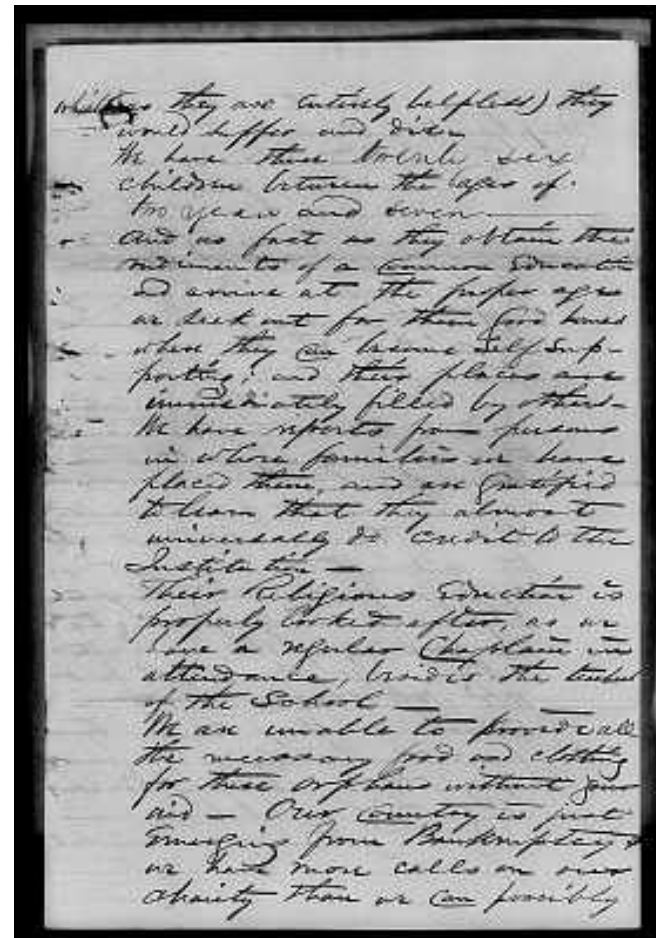 whilst as they are entirely helpless) they
would suffer and die.
We have there twenty six
children between the ages of
two years and seven
And as fast as they obtain the
rudiments of a Common Education
and arrive at the proper ages
we seek out for them good homes
where they can become Self Sup-
porting, and their places are
immediately filled by others—
We have reports from persons
in whose families we have
placed them, and are gratified
to learn that they almost
universally do credit to the
Institution —
Their Religious Education is
properly looked after, as we
have a regular Chaplain in
attendance, besides the teacher
of the School —
We are unable to provide all
the necessary food and clothing
for these orphans without your
aid — Our Country is just
emerging from Bankruptcy &
we have more calls on our
charity than we can possibly